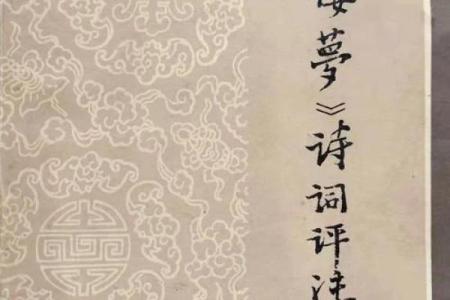 夢》诗词评注